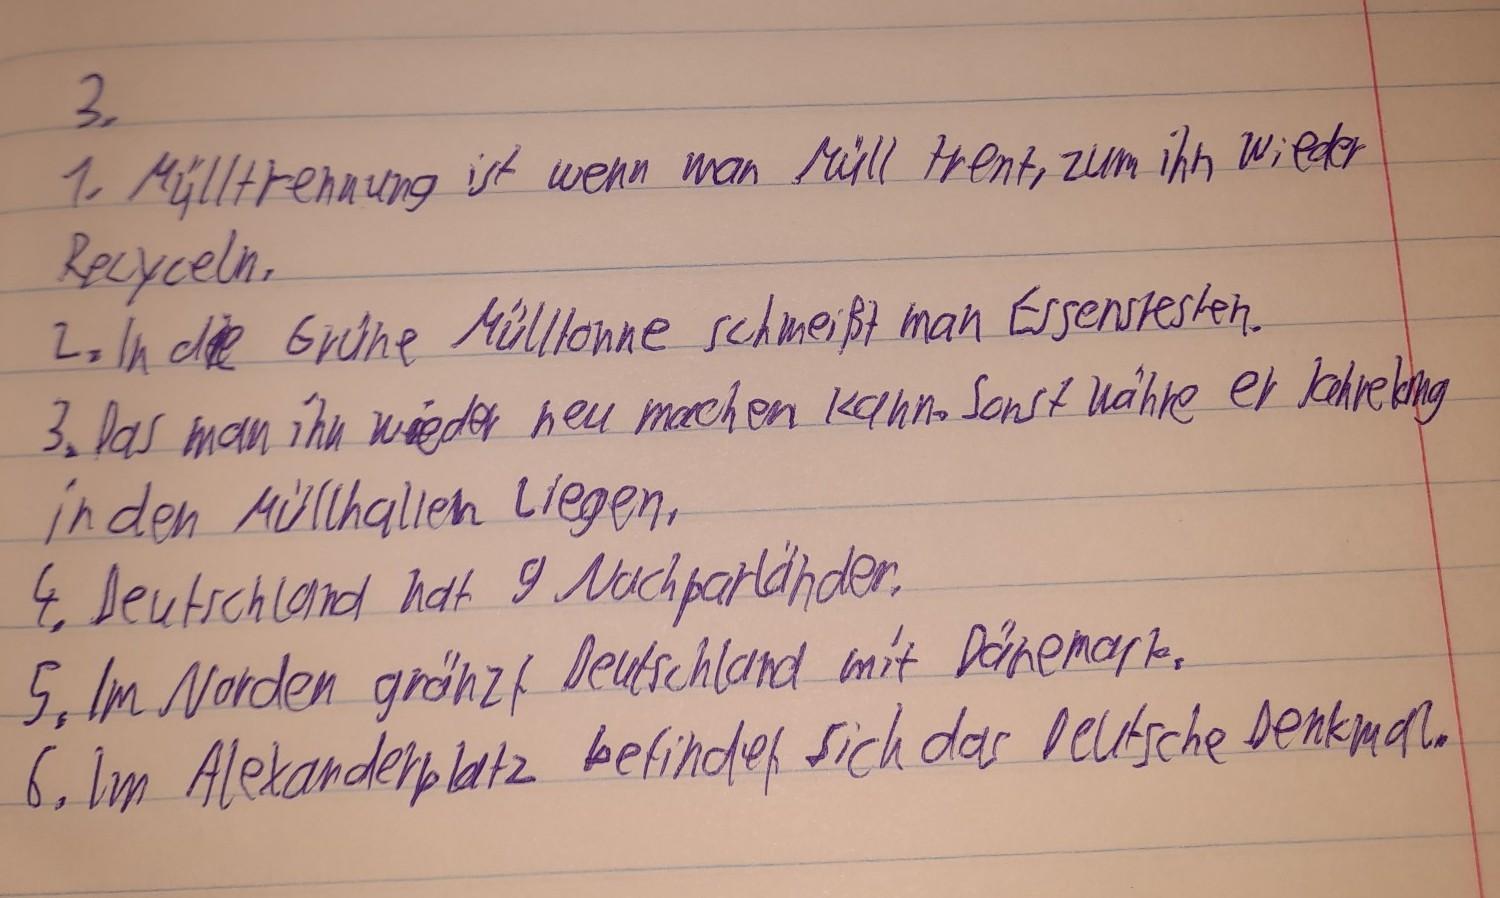 3.
1. Mülltrennung ist wenn man Müll trent, zum ihn wieder
Recyceln.
2. In die Grüne Mülltonne schmeißt man Essensresten.
3. Das man ihn wieder neu machen kann. Sonst währe er Jahrelang
in den Müllhallen Liegen.
4. Deutschland hat 9 Nachparländer.
5. Im Norden gränzt Deutschland mit Dänemark.
6. Im Alexanderplatz befindet sich das Deutsche Denkmal.